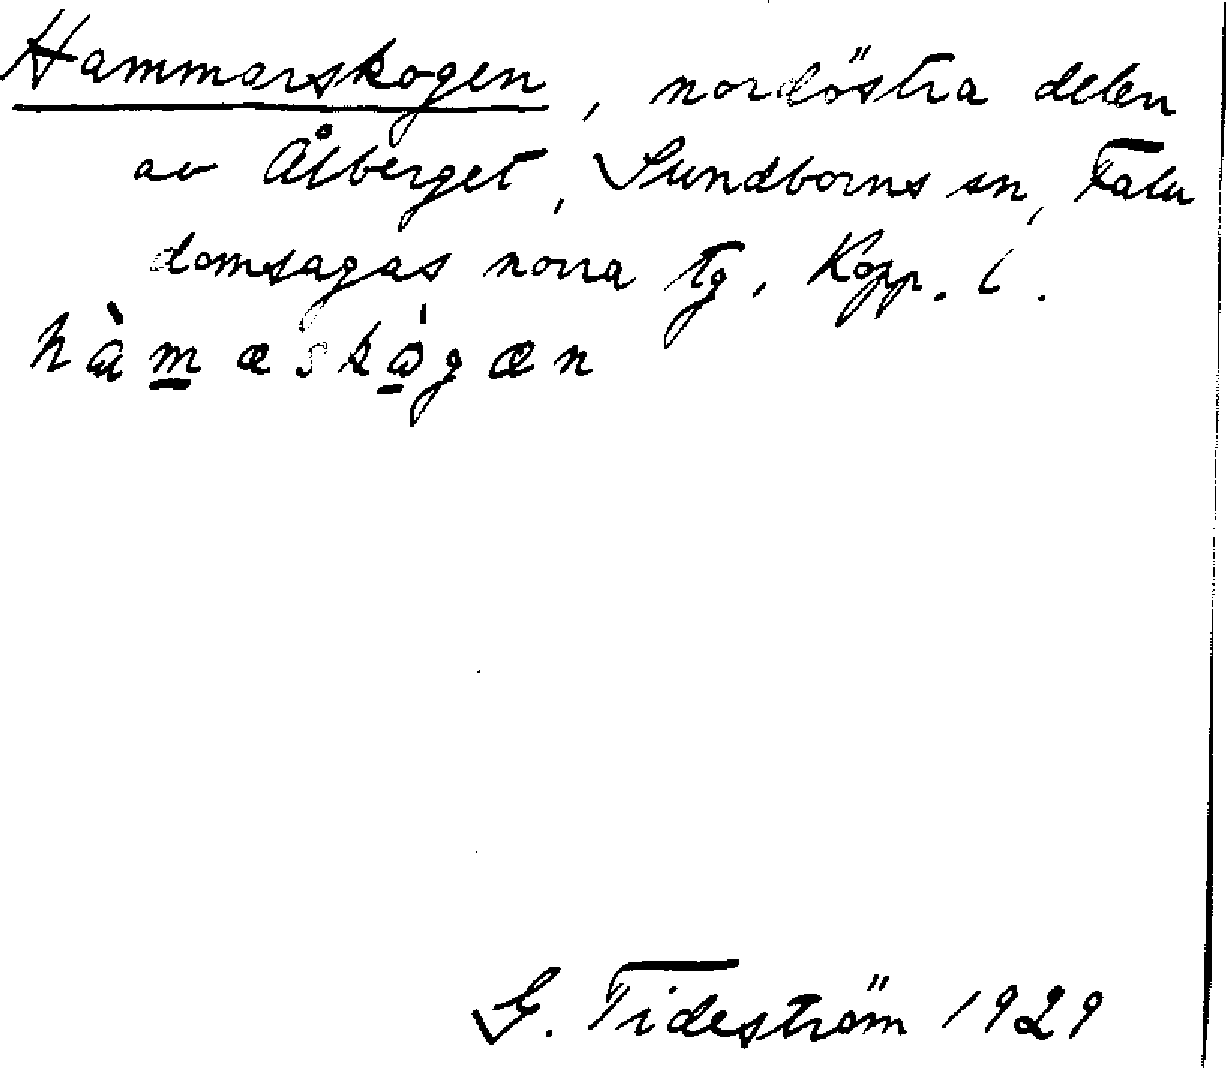 Hammarskogen, nordöstra delen
av Ålberget, Sundborns sn, Falu
domsagas norra tg. Kopp. l.
hàmæskógæn
G. Tideström 1929